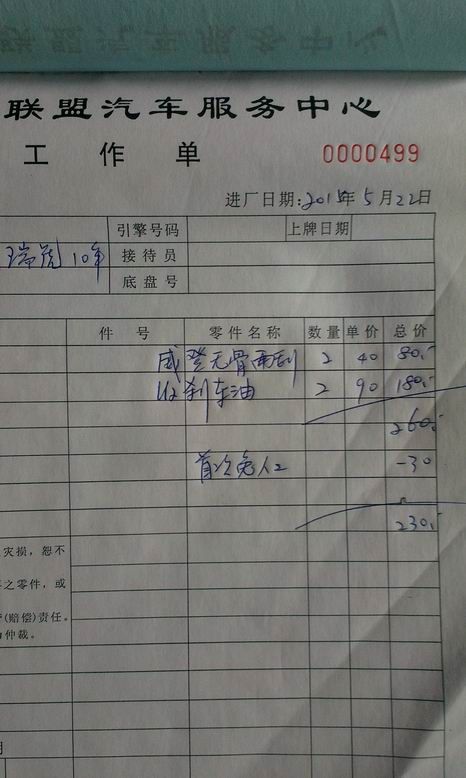 联盟汽车服务中心
工作单 0000499
进厂日期:2015年5月22日
引擎号码 上牌日期
瑞虎10年 接待员
底盘号
件号 零件名称 数量 单价 总价
威登无骨雨刮 2 40 80.-
刹车油 2 90 180.-
260.-
首次免人工 -30
230.-
灾损，恕不
之零件，或
(赔偿)责任。
仲裁。
期